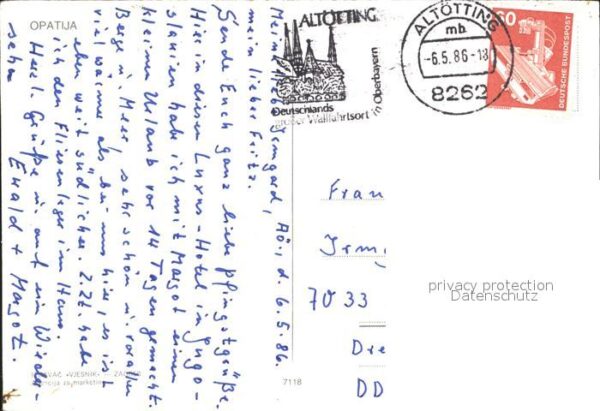 OPATIJA
Meine liebe Irmgard, AÖ., d. 6.5.86.
mein lieber Fritz.
Sende Euch ganz liebe Pfingstgrüße.
Hier in diesen Luxus-Hotel in Jugo-
slawien habe ich mit Margot einen
kleinen Urlaub vor 14 Tagen gemacht.
Berge u. Meer sehr schön u. vor allem
viel wärmer als bei uns hier, es ist
eben weit südlicher. Z.Zt. habe
ich den Fliesenleger im Haus.
Herzl. Grüße u. auf ein Wieder-
sehn Ewald + Margot.
ALTÖTTING
Deutschlands
großer Wallfahrtsort in Oberbayern
ALTÖTTING
mb
-6.5.86-18
8262
60
DEUTSCHE BUNDESPOST
Frau
Irmg
7033
Dre
DD
privacy protection
Datenschutz
«VJESNIK» - ZAGREB
za marketing
7118